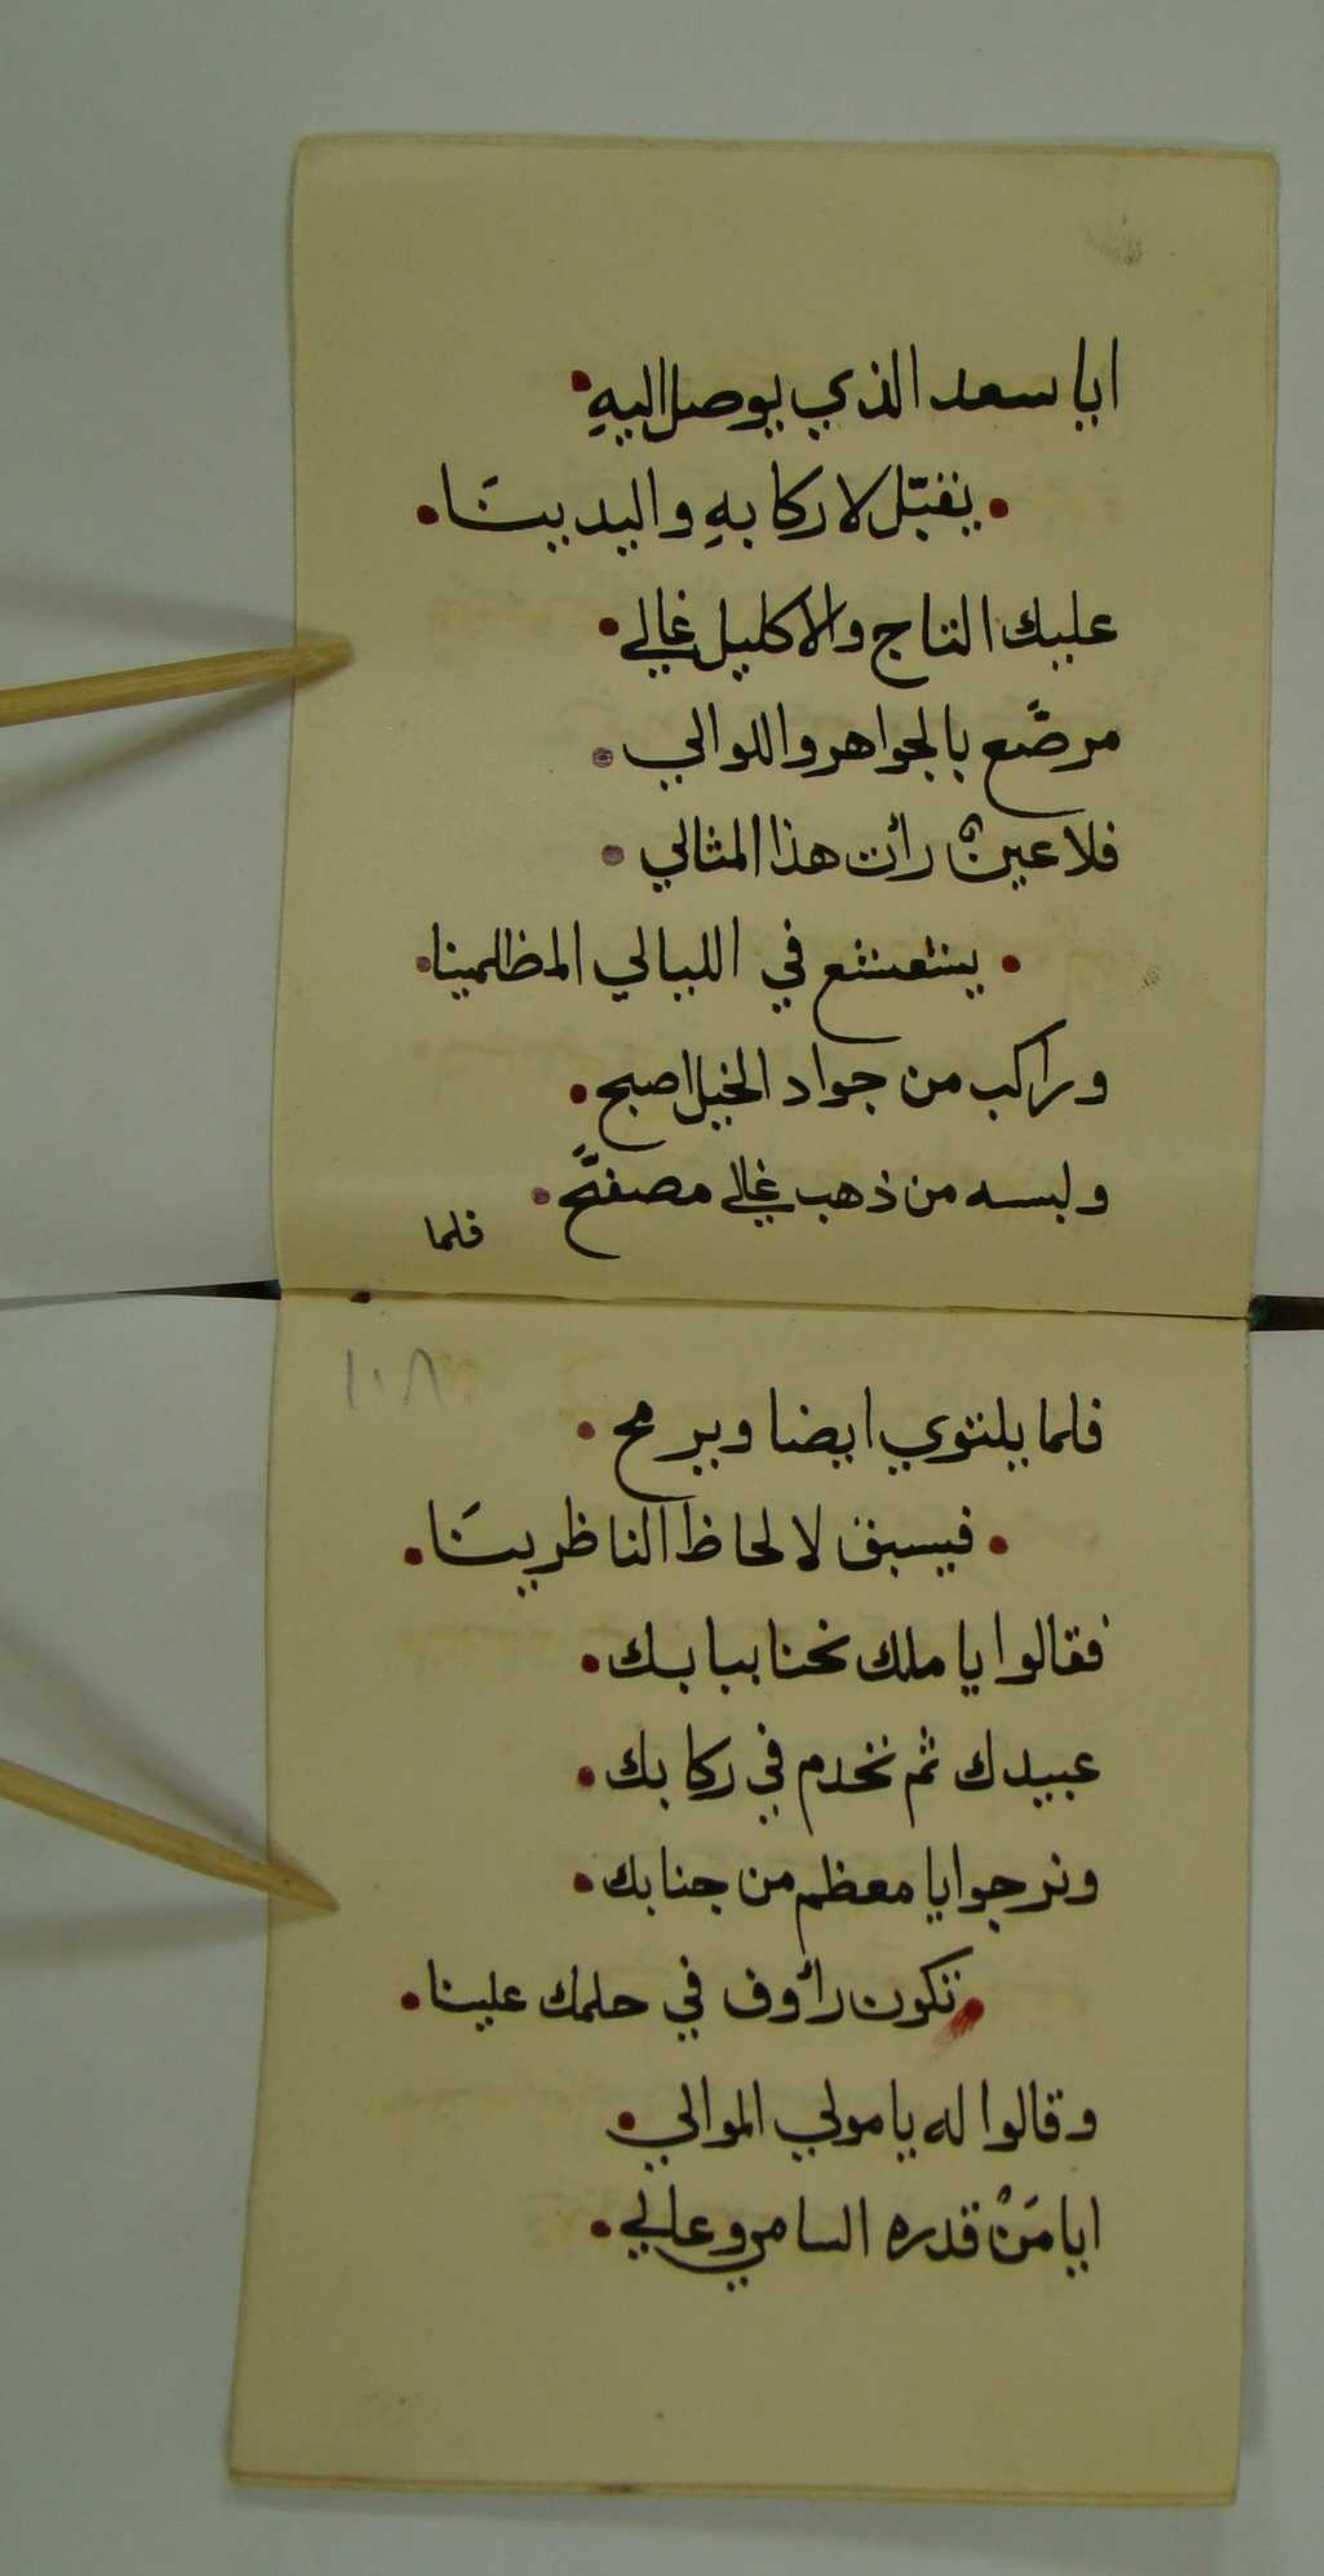 ايا سعد الذي يوصل اليهِ
يقبّل لا ركابهِ واليدينَا
عليك التاج والاكليل غالي
مرصَّع بالجواهر واللوالي
فلا عينٌ رأت هذا المثالي
يشعشع في الليالي المظلمينا
وراكب من جواد الخيل اصبح
ولبسه من ذهب غالي مصفَّح
فلما
١٠٨
فلما يلتوي ايضا ويرمح
فيسبق لا لحاظ الناظرينَا
فقالوا يا ملك نحنا ببابك
عبيدك ثم نخدم في ركابك
ونرجوا يا معظم من جنابك
تكون رأوف في حلمك علينا
وقالوا له يا مولي الموالي
ايا مَنْ قدره السامي وعالي